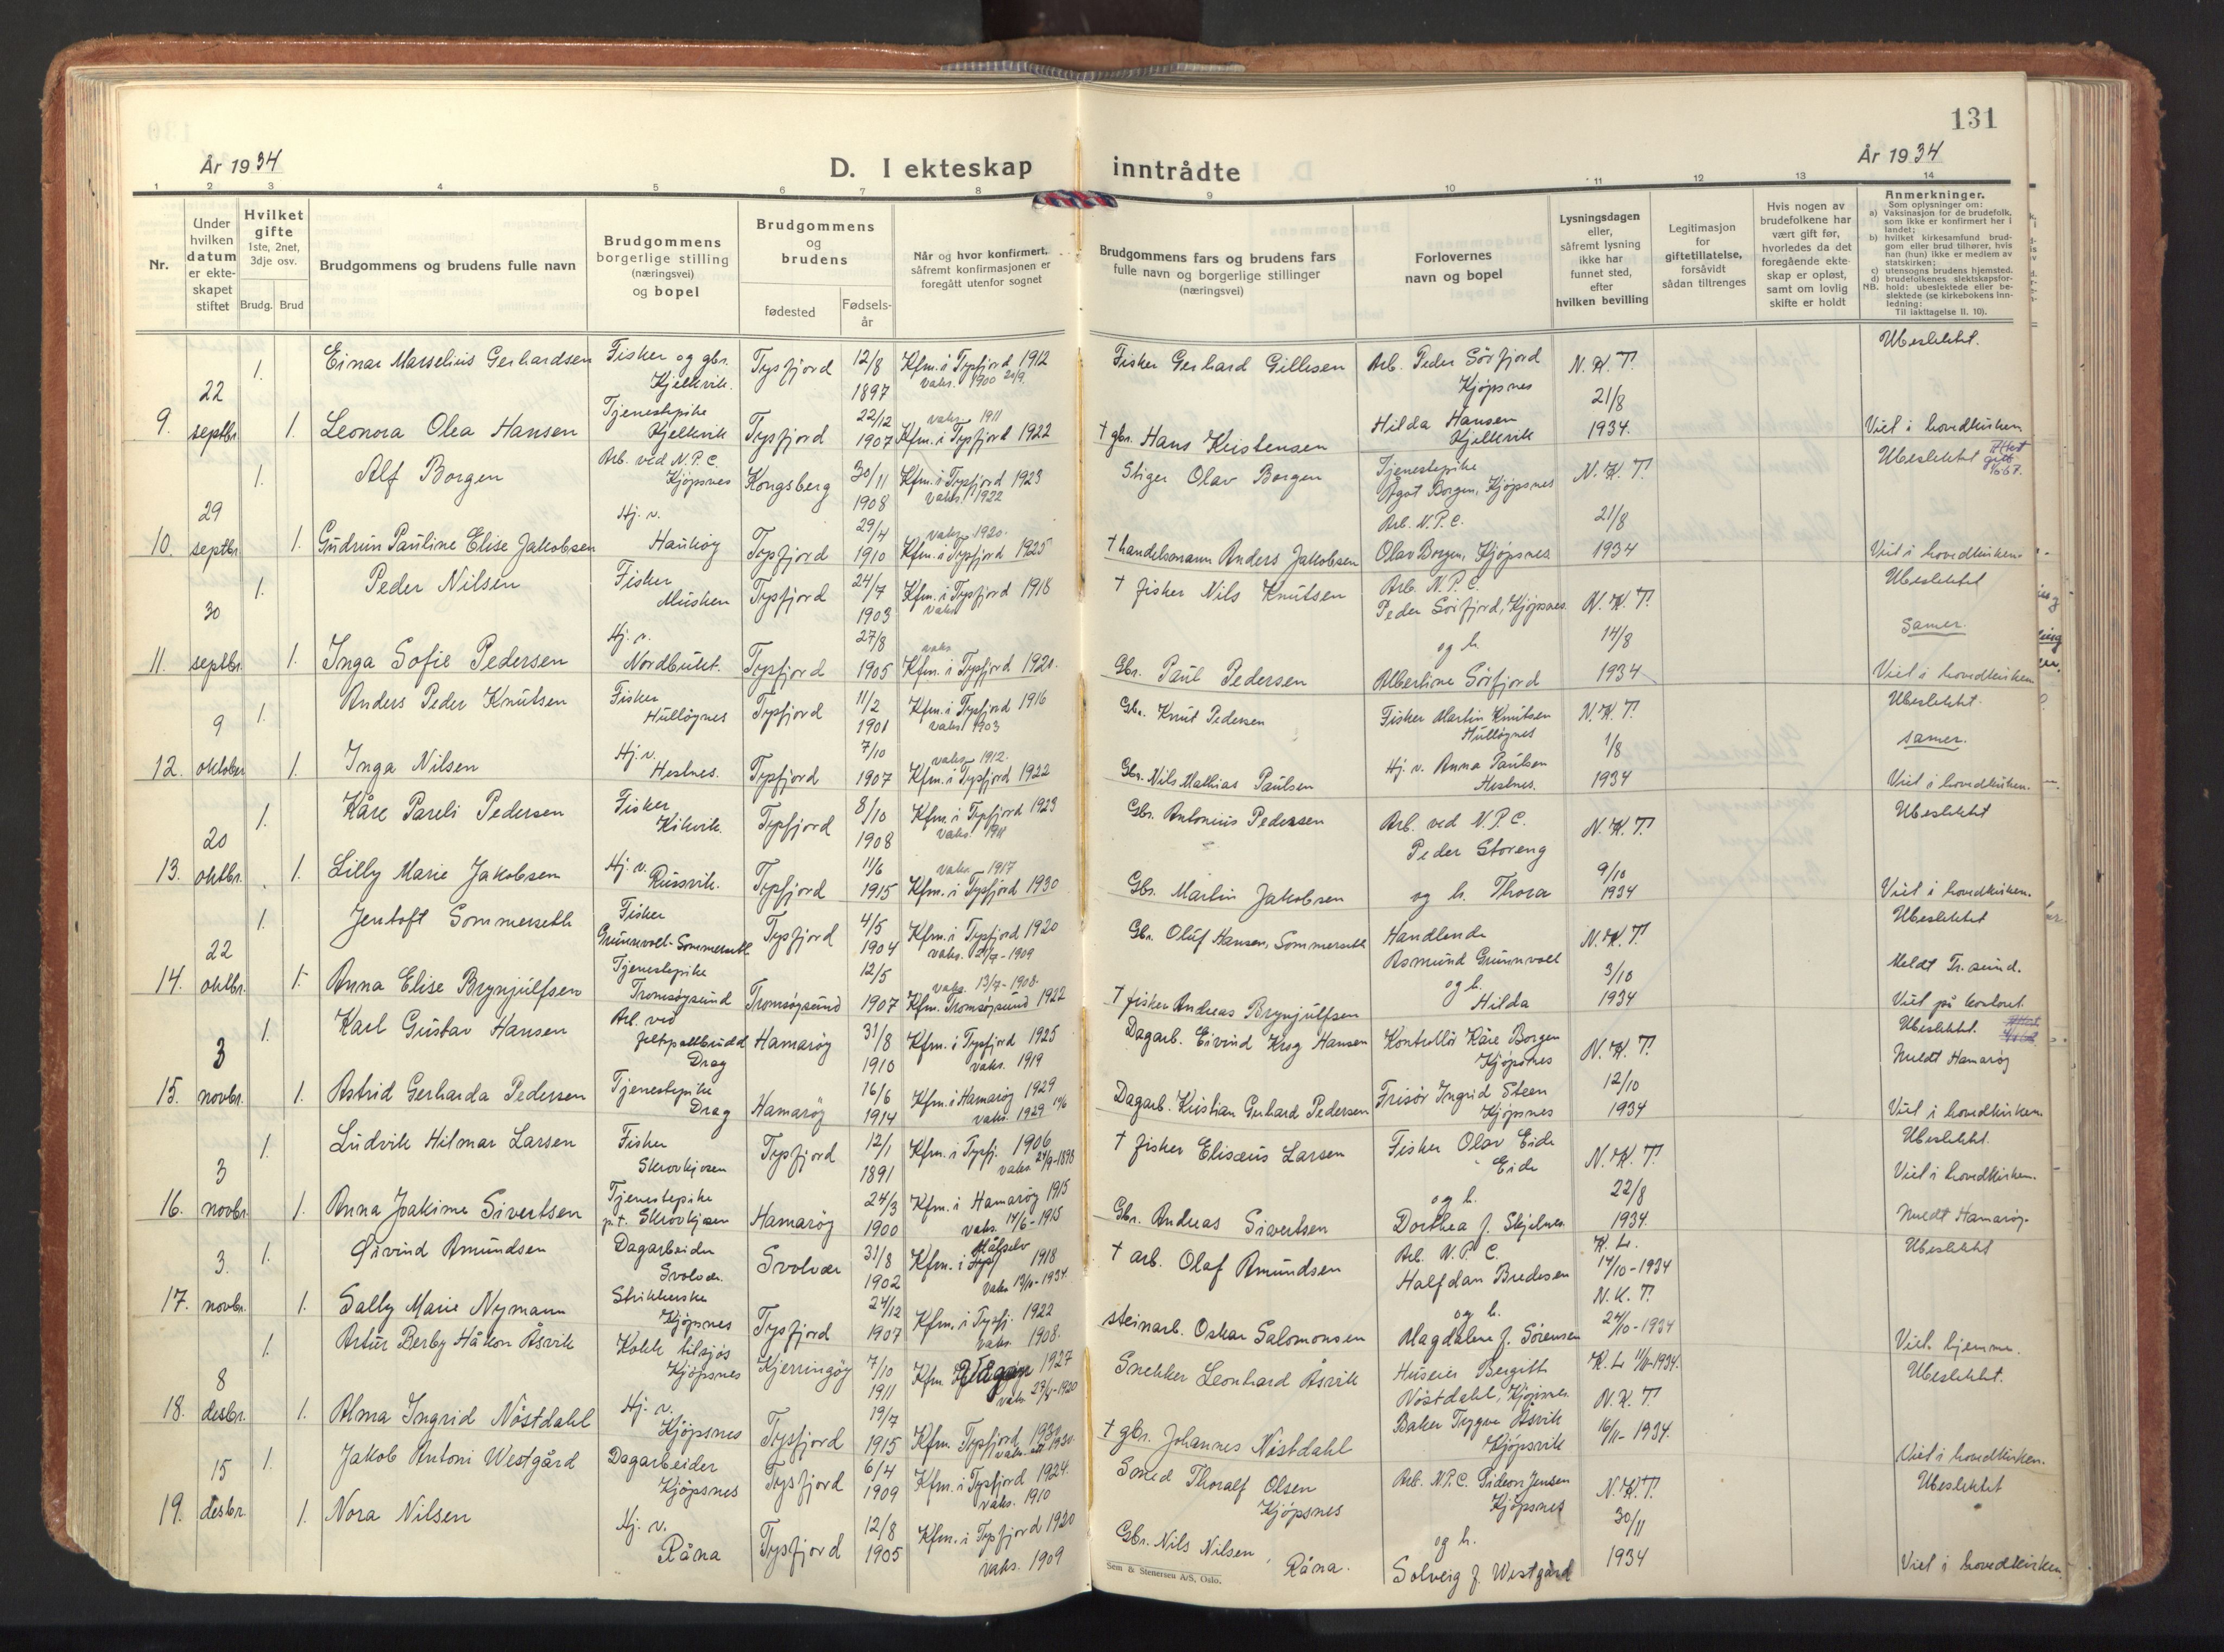 131
År 1934
D. I ekteskap inntrådte
År 1934
1 2 3 4 5 6 7 8 9 10 11 12 13 14
Nr.
Under hvilken datum er ekte-skapet stiftet
Hvilket gifte
1ste, 2net, 3dje osv.
Brudg. Brud
Brudgommens og brudens fulle navn
Brudgommens borgerlige stilling (næringsvei) og bopel
Brudgommens og brudens
fødested
Fødsels-år
Når og hvor konfirmert, såfremt konfirmasjonen er foregått utenfor sognet
Brudgommens fars og brudens fars fulle navn og borgerlige stillinger (næringsvei)
Forlovernes navn og bopel
Lysningsdagen eller, såfremt lysning ikke har funnet sted, efter hvilken bevilling
Legitimasjon for giftetillatelse, forsåvidt sådan tiltrenges
Hvis nogen av brudefolkene har vært gift før, hvorledes da det foregående ekte-skap er opløst, samt om lovlig skifte er holdt
Anmerkninger.
Som oplysninger om:
a) Vaksinasjon for de brudefolk, som ikke er konfirmert her i landet;
b) hvilket kirkesamfund brud-gom eller brud tilhører, hvis han (hun) ikke er medlem av statskirken;
c) utensogns brudens hjemsted.
d) brudefolkenes slektskapsfor-hold: ubeslektede eller be-slektede (se kirkebokens inn-ledning:
NB. Til iakttagelse II. 10).
9. 22 septbr. 1. Einar Marselius Gerhardsen Fisker og gbr. Kjelkvik. Tysfjord 12/8 1897 Kfm. i Tysfjord 1912 vaks. 1900 Fisker Gerhard Gillesen Arb. Peder Sörfjord Kjöpsnes N.K.T. 21/8 1934. Ubeslektet.
1. Leonora Olea Hansen Tjenestepike Kjelkvik Tysfjord 22/12 1907 vaks. 1911 Kfm. i Tysfjord 1922 † gbr. Hans Kristensen Hilda Hansen Kjelkvik Viet i hovedkirken
10. 29 septbr. 1. Alf Borgen Arb. ved N.P.C. Kjöpsnes Kongsberg 30/11 1908 Kfm. i Tysfjord 1923 vaks. 1922 Stiger Olav Borgen Tjenestepike Ågot Borgen, Kjöpsnes N.K.T. 21/8 1934 Ubeslektet
1. Gudrun Pauline Elise Jakobsen Hj. v. Haukøy Tysfjord 29/4 1910 vaks. 1920. Kfm. i Tysfjord 1925 † handelsmann Anders Jakobsen Arb. N.P.C. Olav Borgen, Kjöpsnes Viet i hovedkirken.
11. 30 septbr. 1. Peder Nilsen Fisker Musken Tysfjord 24/7 1903 Kfm. i Tysfjord 1918 vaks † fisker Nils Knutsen Arb. N.P.C. Peder Sörfjord, Kjöpsnes N.K.T. 14/8 1934 Ubeslektet samer.
1. Inga Sofie Pedersen Hj. v. Nordbukt. Tysfjord 27/8 1905 vaks Kfm. i Tysfjord 1920. Gbr. Paul Pedersen og h. Albertine Sörfjord Viet i hovedkirken
12. 9 oktober 1. Anders Peder Knutsen Fisker Hulløgnes Tysfjord 11/2 1901 Kfm. i Tysfjord 1916 vaks 1903 Gbr. Knut Pedersen Fisker Martin Knutsen Hulløgnes N.K.T. 1/8 1934 Ubeslektet. samer.
1. Inga Nilsen Hj. v. Heslnes. Tysfjord 7/10 1907 vaks. 1912. Kfm. i Tysfjord 1922 Gbr. Nils Mathias Paulsen Hj. v. Anna Paulsen Heslnes. Viet i hovedkirken.
13. 20 oktbr. 1. Kåre Pareli Pedersen Fisker Kikvik. Tysfjord 8/10 1908 Kfm. i Tysfjord 1923 vaks. 1911 Gbr. Antonius Pedersen Arb. ved N.P.C. Peder Storeng N.K.T. 9/10 1934 Ubeslektet
1. Lilly Marie Jakobsen Hj. v. Russvik. Tysfjord 11/6 1915 vaks. 1917 Kfm. i Tysfjord 1930 Gbr. Martin Jakobsen og h. Thora Viet i hovedkirken.
14. 22 oktbr. 1. Jentoft Sommerseth Fisker Grunnvoll-Sommerseth Tysfjord 4/5 1904 Kfm. i Tysfjord 1920 vaks. 21/7-1909 Gbr. Oluf Hansen, Sommerseth Handlende Asmund Grunnvoll N.K.T. 3/10 1934 Ubeslektet Meldt Tr. sund.
1. Anna Elise Brynjulfsen Tjenestepike Tromsøysund Tromsøysund 12/5 1907 vaks. 13/7-1908. Kfm. Tromsøysund 1922 † fisker Andreas Brynjulfsen og h. Hilda Viet på kontoret
15. 3 novbr. 1. Karl Gustav Hansen Arb. ved feltspatbrudd Drag Hamarøy 31/8 1910 Kfm. i Tysfjord 1925 vaks. 1919 Dagarb. Eivind Krog Hansen Kontrollör Kåre Borgen Kjöpsnes N.K.T. 12/10 1934 Ubeslektet. Meldt Hamarøy
1. Astrid Gerharda Pedersen Tjenestepike Drag Hamarøy 16/6 1914 Kfm. i Hamarøy 1929 vaks. 1929 Dagarb. Kristian Gerhard Pedersen Frisör Ingrid Steen Kjöpsnes Viet i hovedkirken
16. 3 novbr. 1. Ludvik Hilmar Larsen Fisker Skrovkjosen Tysfjord 12/1 1891 Kfm. i Tysfj. 1906 vaks. 24/9-1898 † fisker Eliseus Larsen Fisker Olav Eide Eide N.K.T. 22/8 1934. Ubeslektet. Viet i hovedkirken.
1. Anna Joakime Sivertsen Tjenestepike p.t. Skrovkjosen Hamarøy 24/3 1900 Kfm. i Hamarøy 1915 vaks. 17/6-1915 Gbr. Andreas Sivertsen og h. Dorthea f. Skjelnes Meldt Hamarøy.
17. 3. novbr. 1. Øivind Amundsen Dagarbeider Svolvær Svolvær 31/8 1902 Kfm. i Målselv 1918 † arb. Olaf Amundsen Arb. N.P.C. Halfdan Bredesen K.L. 14/10-1934 Ubeslektet
1. Sally Marie Nymann Strikkerske Kjöpsnes Tysfjord 24/12 1907 Kfm. i Tysfj. 1922 vaks. 1908. steinarb. Oskar Salomonsen og h. Magdalene f. Sörensen N.K.T. 24/10-1934 Viet hjemme.
18. 8 desbr. 1. Artur Berby Håkon Åsvik Kokk tilsjøs Kjöpsnes Kjerringøy 7/10 1911 Kfm. 1927 vaks. 29/4-1920 Snekker Leonhard Åsvik Husm Bergitte Nöstdahl, Kjöpsnes K.L. 11/11-1934. Ubeslektet.
1. Alma Ingrid Nöstdahl Hj. v. Kjöpsnes Tysfjord 19/7 1915 Kfm. Tysfjord 1930 † gbr. Johannes Nöstdahl Baker Trygve Åsvik Kjöpsvik N.K.T. 16/11-1934. Viet i hovedkirken.
19. 15 desbr. 1. Jakob Antoni Westgård Dagarbeider Kjöpsnes Tysfjord 6/4 1909 Kfm. i Tysfjord 1924. vaks. 1910 Smed Thoralf Olsen Kjöpsnes Arb. N.P.C. Gideon Jensen Kjöpsnes N.K.T. 30/11 1934 Ubeslektet
1. Nora Nilsen Hj. v. Råna Tysfjord 12/8 1905 Kfm. i Tysfjord 1920 vaks. 1909 Gbr. Nils Nilsen, Råna. og h. Solveig f. Westgård Viet i hovedkirken
Sem & Stenersen A/S, Oslo.